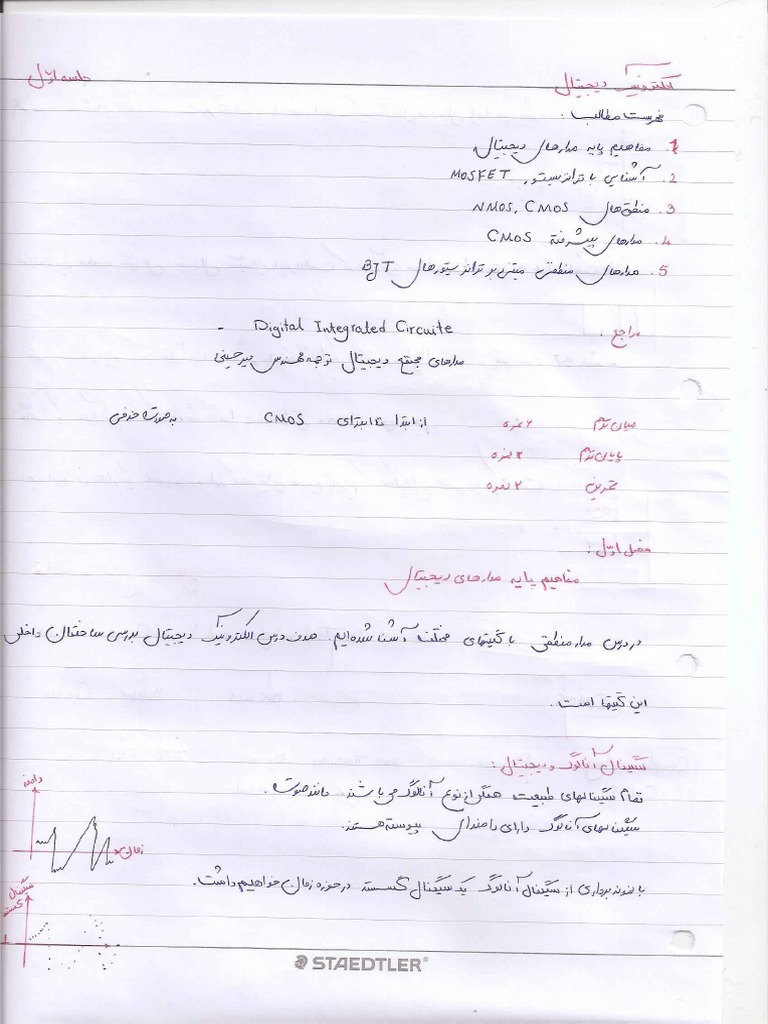 الکترونیک دیجیتال
جلسه اوّل
فهرست مطالب :
1. مفاهیم پایه مدارهای دیجیتال
2. آشنایی با ترانزیستور MOSFET
3. منطق های NMOS, CMOS
4. مدارهای پیشرفته CMOS
5. مدارهای منطقی مبتنی بر ترانزیستورهای BJT
مراجع :
Digital Integrated Circuite -
مدارهای مجتمع دیجیتال ترجمه مهندس میرحسینی
میان ترم ۶ نمره از ابتدا تا ابتدای CMOS به صورت حذفی
پایان ترم ۱۲ نمره
تمرین ۲ نمره
فصل اوّل :
مفاهیم پایه مدارهای دیجیتال
در درس مدار منطقی با گیتهای مختلف آشنا شده ایم. هدف درس الکترونیک دیجیتال بررسی ساختمان داخلی
این گیتها است.
سیگنال آنالوگ و دیجیتال :
تمام سیگنالهای طبیعت همگی از نوع آنالوگ می باشند. مانند صوت.
سیگنالهای آنالوگ دارای دامنه ای پیوسته هستند.
دامنه
زمان
با نمونه برداری از سیگنال آنالوگ یک سیگنال گسسته در حوزه زمان خواهیم داشت.
سیگنال
گسسته
STAEDTLER®